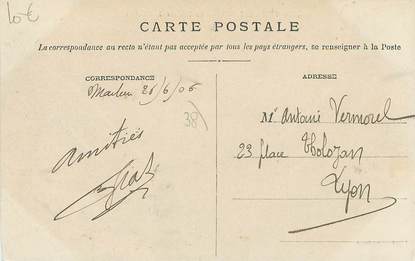 10€
CARTE POSTALE
La correspondance au recto n'étant pas acceptée par tous les pays étrangers, se renseigner à la Poste
CORRESPONDANCE
21/6/06
38
Amitiés
ADRESSE
Mr Antoni Vermorel
23 place Tholozan
Lyon